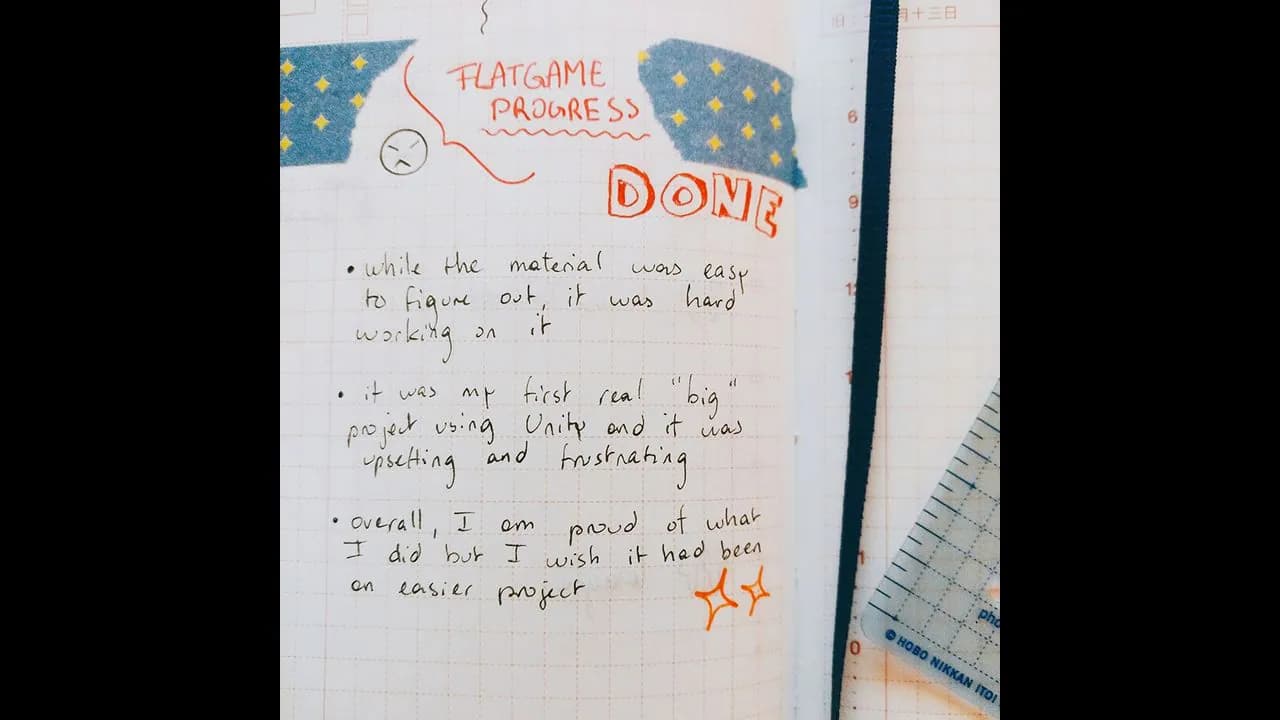 FLATGAME
PROGRESS
DONE
• while the material was easy
to figure out, it was hard
working on it
• it was my first real "big"
project using Unity and it was
upsetting and frustrating
• overall, I am proud of what
I did but I wish it had been
an easier project
十三日
6
9
1
0
pho
© HOBO NIKKAN ITOI